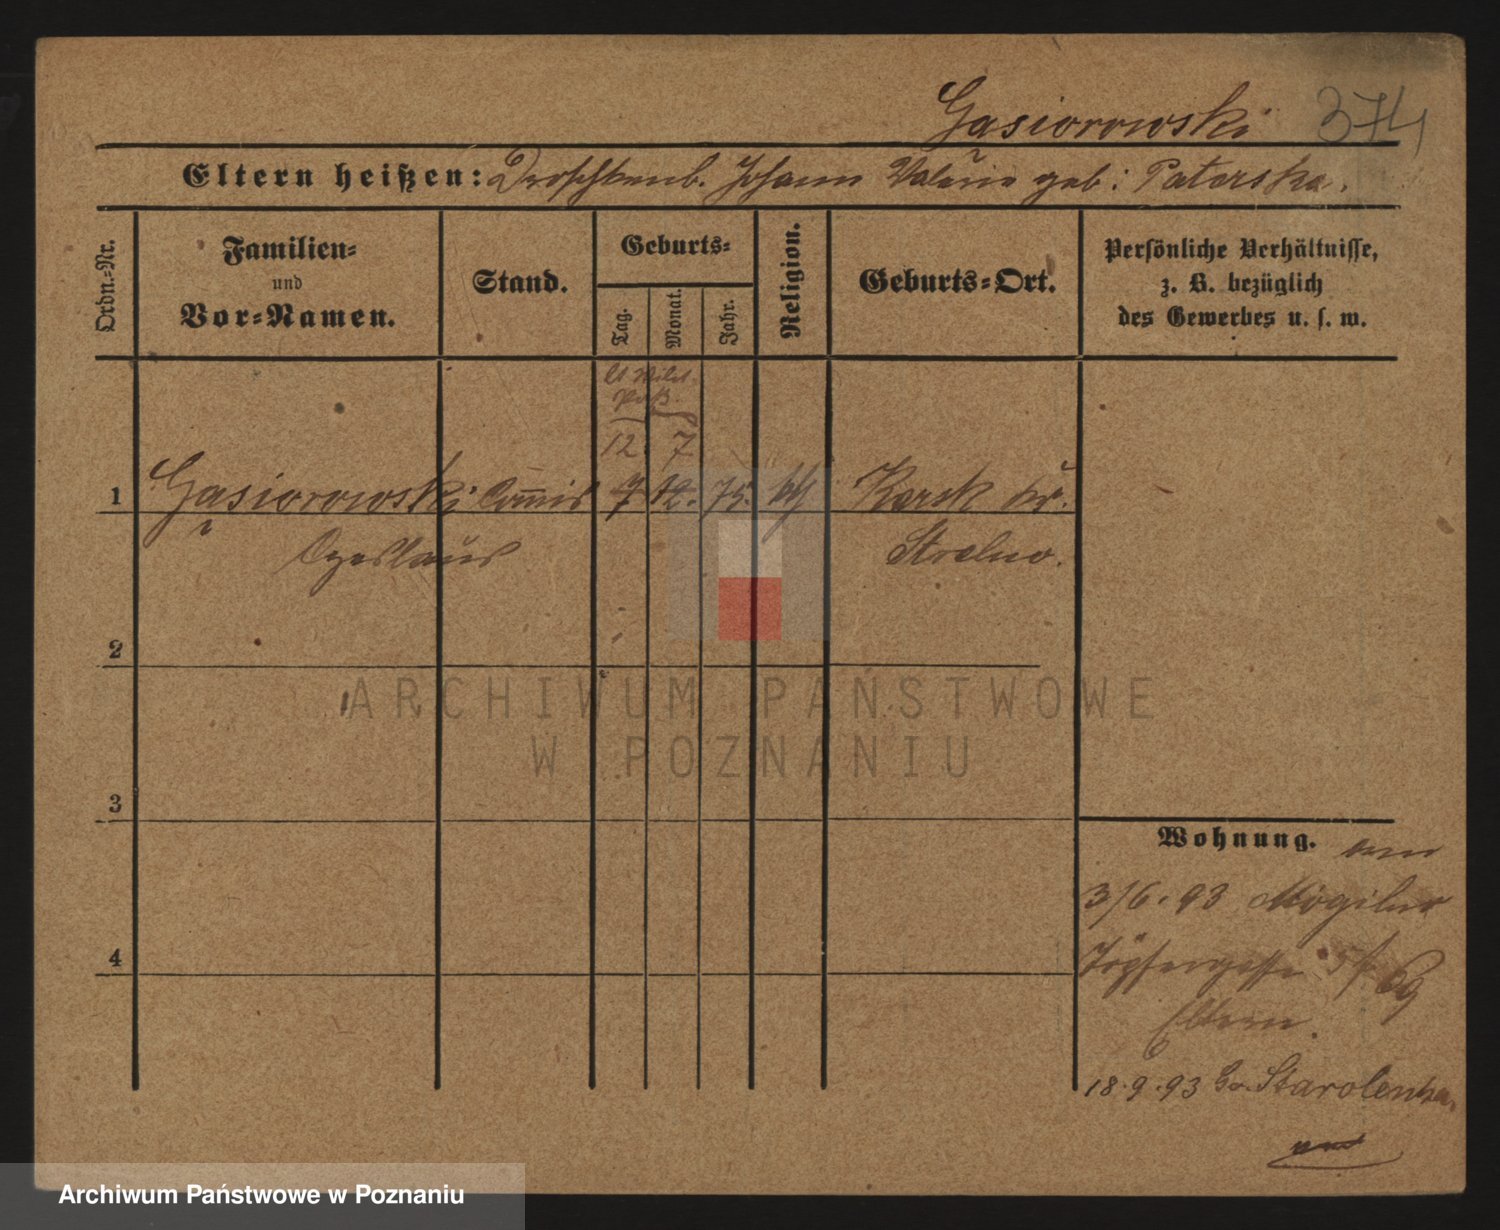 Gasiorowski 374
Eltern heißen: Droschkenb. Johann Valerie geb: Patorska.
Ordn.-Nr.
Familien-
und
Vor-Namen.
Stand.
Geburts-
Tag.
Monat.
Jahr.
Religion.
Geburts-Ort.
Persönliche Verhältnisse,
z. B. bezüglich
des Gewerbes u. s. w.
lt Milit.
Paß.
12. 7
1 Gasiorowski Commis 7 12. 75. Kr.
Czeslaus Strelno.
2
3
4
Wohnung.
3/6.93 Mogilno
Töpfergasse
Eltern.
18.9.93 Starolenka
ARCHIWUM PAŃSTWOWE
W POZNANIU
Archiwum Państwowe w Poznaniu